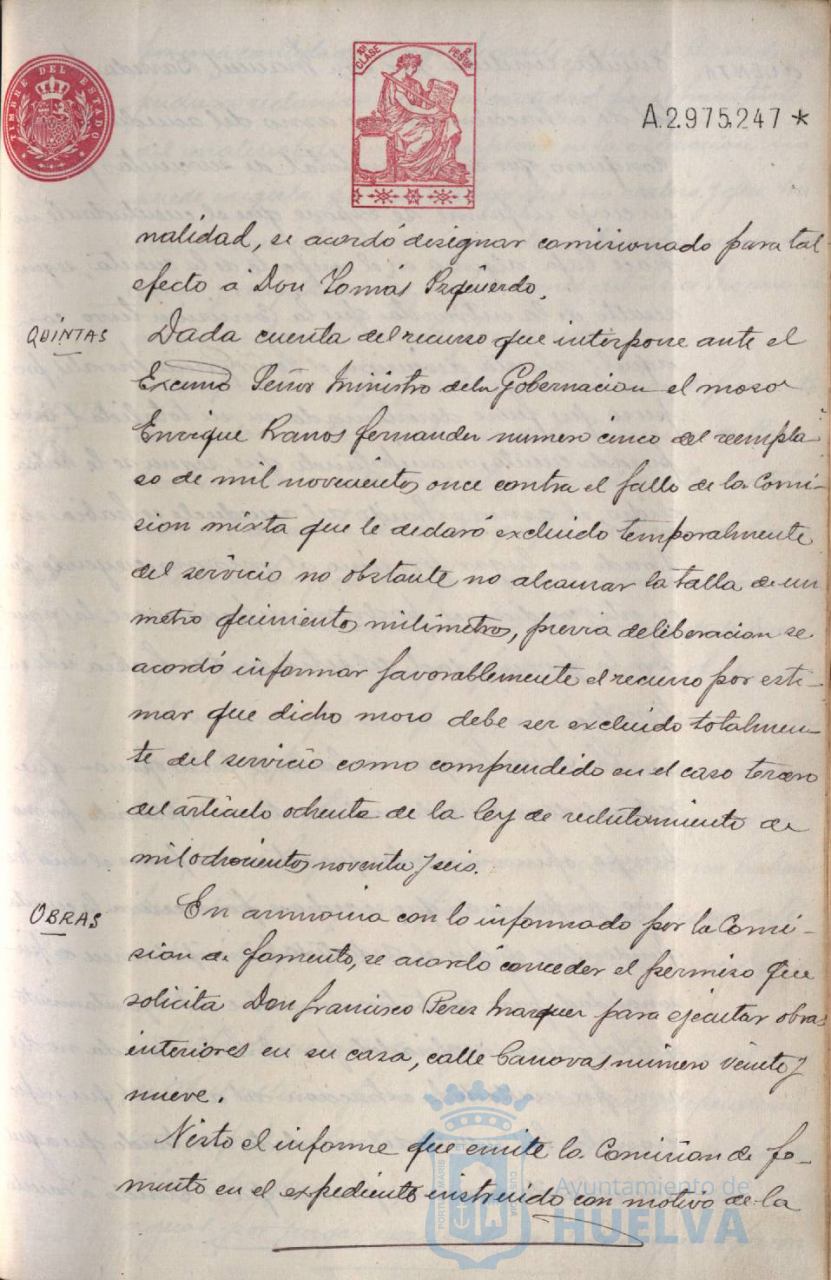 TIMBRE DEL ESTADO
XI CLASE 2 PESETAS
A.2.975.247 *
nalidad, se acordó designar comisionado para tal
efecto á Don Tomás Izquierdo.
QUINTAS
Dada cuenta del recurso que interpone ante el
Excmo Señor Ministro de la Gobernacion el moso
Enrique Ramos Fernandez numero cinco del reempla-
so de mil novecientos once contra el fallo de la Comi-
sion mixta que le declaró excluido temporalmente
del servicio no obstante no alcanzar la talla de un
metro quinientos milimetros, previa deliberacion se
acordó informar favorablemente el recurso por esti-
mar que dicho moso debe ser excluido totalmen-
te del servicio como comprendido en el caso tercero
del articulo ochenta de la ley de reclutamiento de
mil ochocientos noventa y seis.
OBRAS
En armonia con lo informado por la Comi-
sion de fomento, se acordó conceder el permiso que
solicita Don Francisco Perez Marquez para ejecutar obras
interiores en su casa, calle Canovas número veinte y
nueve.
Visto el informe que emite la Comision de fo-
mento en el expediente instruido con motivo de la
Ayuntamiento de
HUELVA